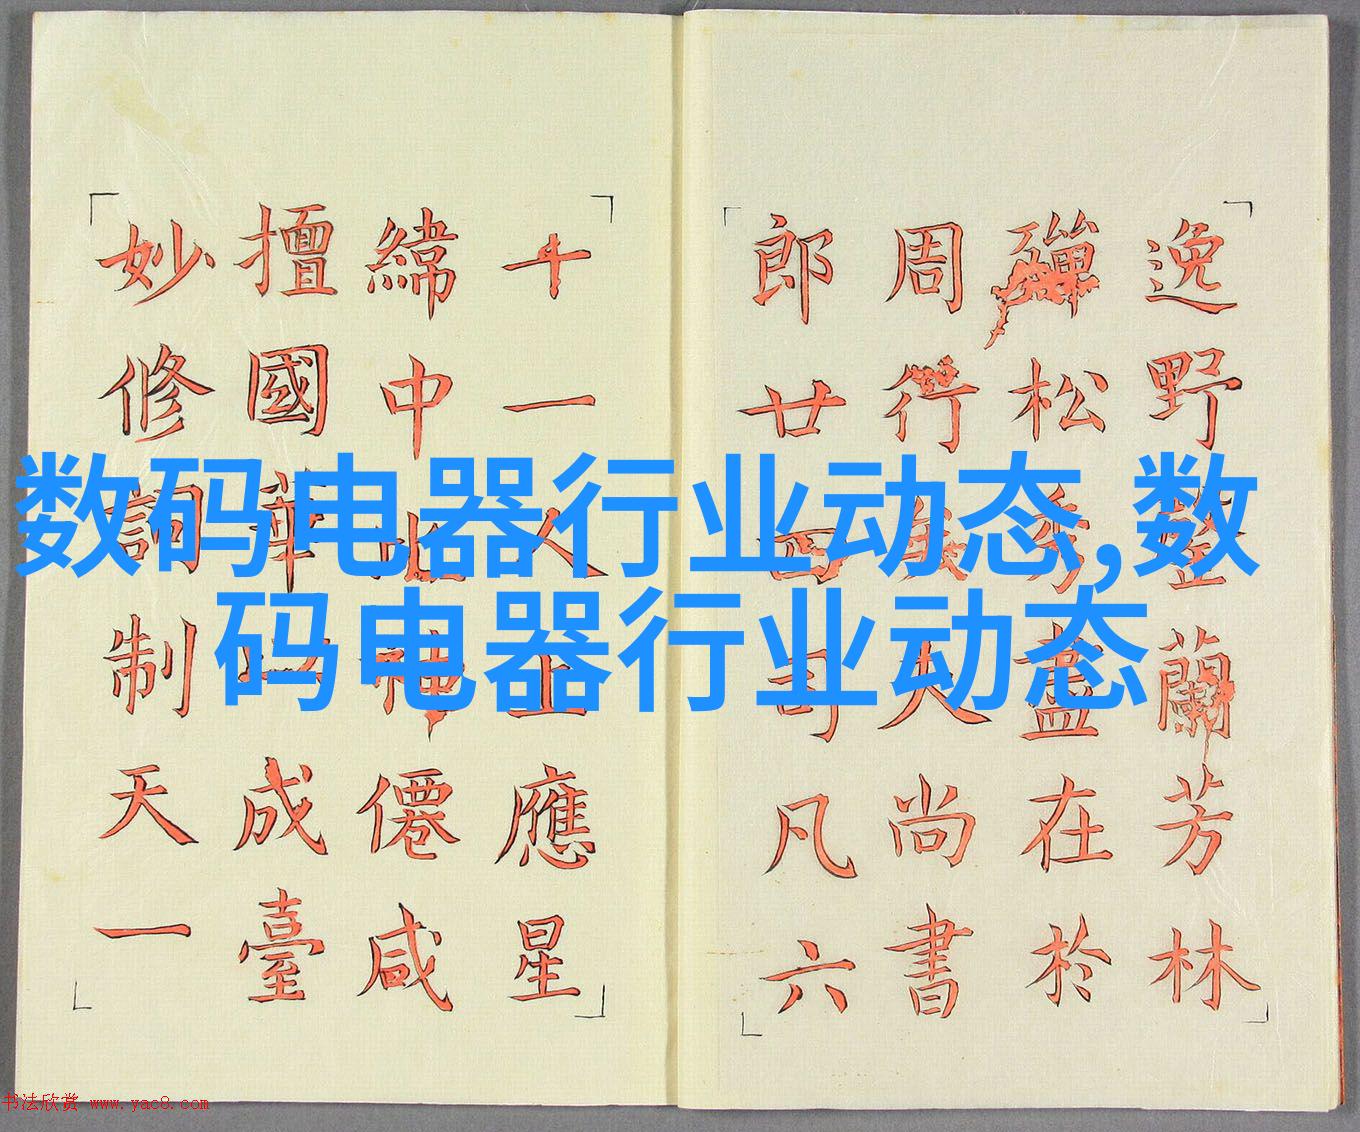 数码电器行业动态,数
码电器行业动态
逸野蘭芳林
殫松秀盡在於
周尚書
郎廿司凡六
十一人應星
緯中神僊咸
擅國華成臺
妙修詞制天一
书法欣赏 www.yac8.com